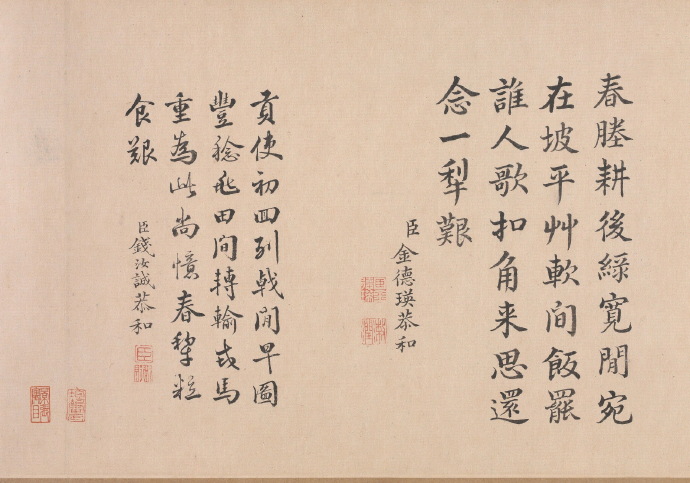 春塍耕後綠寬閒宛
在坡平艸軟間飯罷
誰人歌扣角来思還
念一犁艱
臣金德瑛恭和
貢使初回列戟閒早圖
豐稔兆田間轉輸戎馬
重為此尚憶春犂粒
食艱
臣錢汝誠恭和